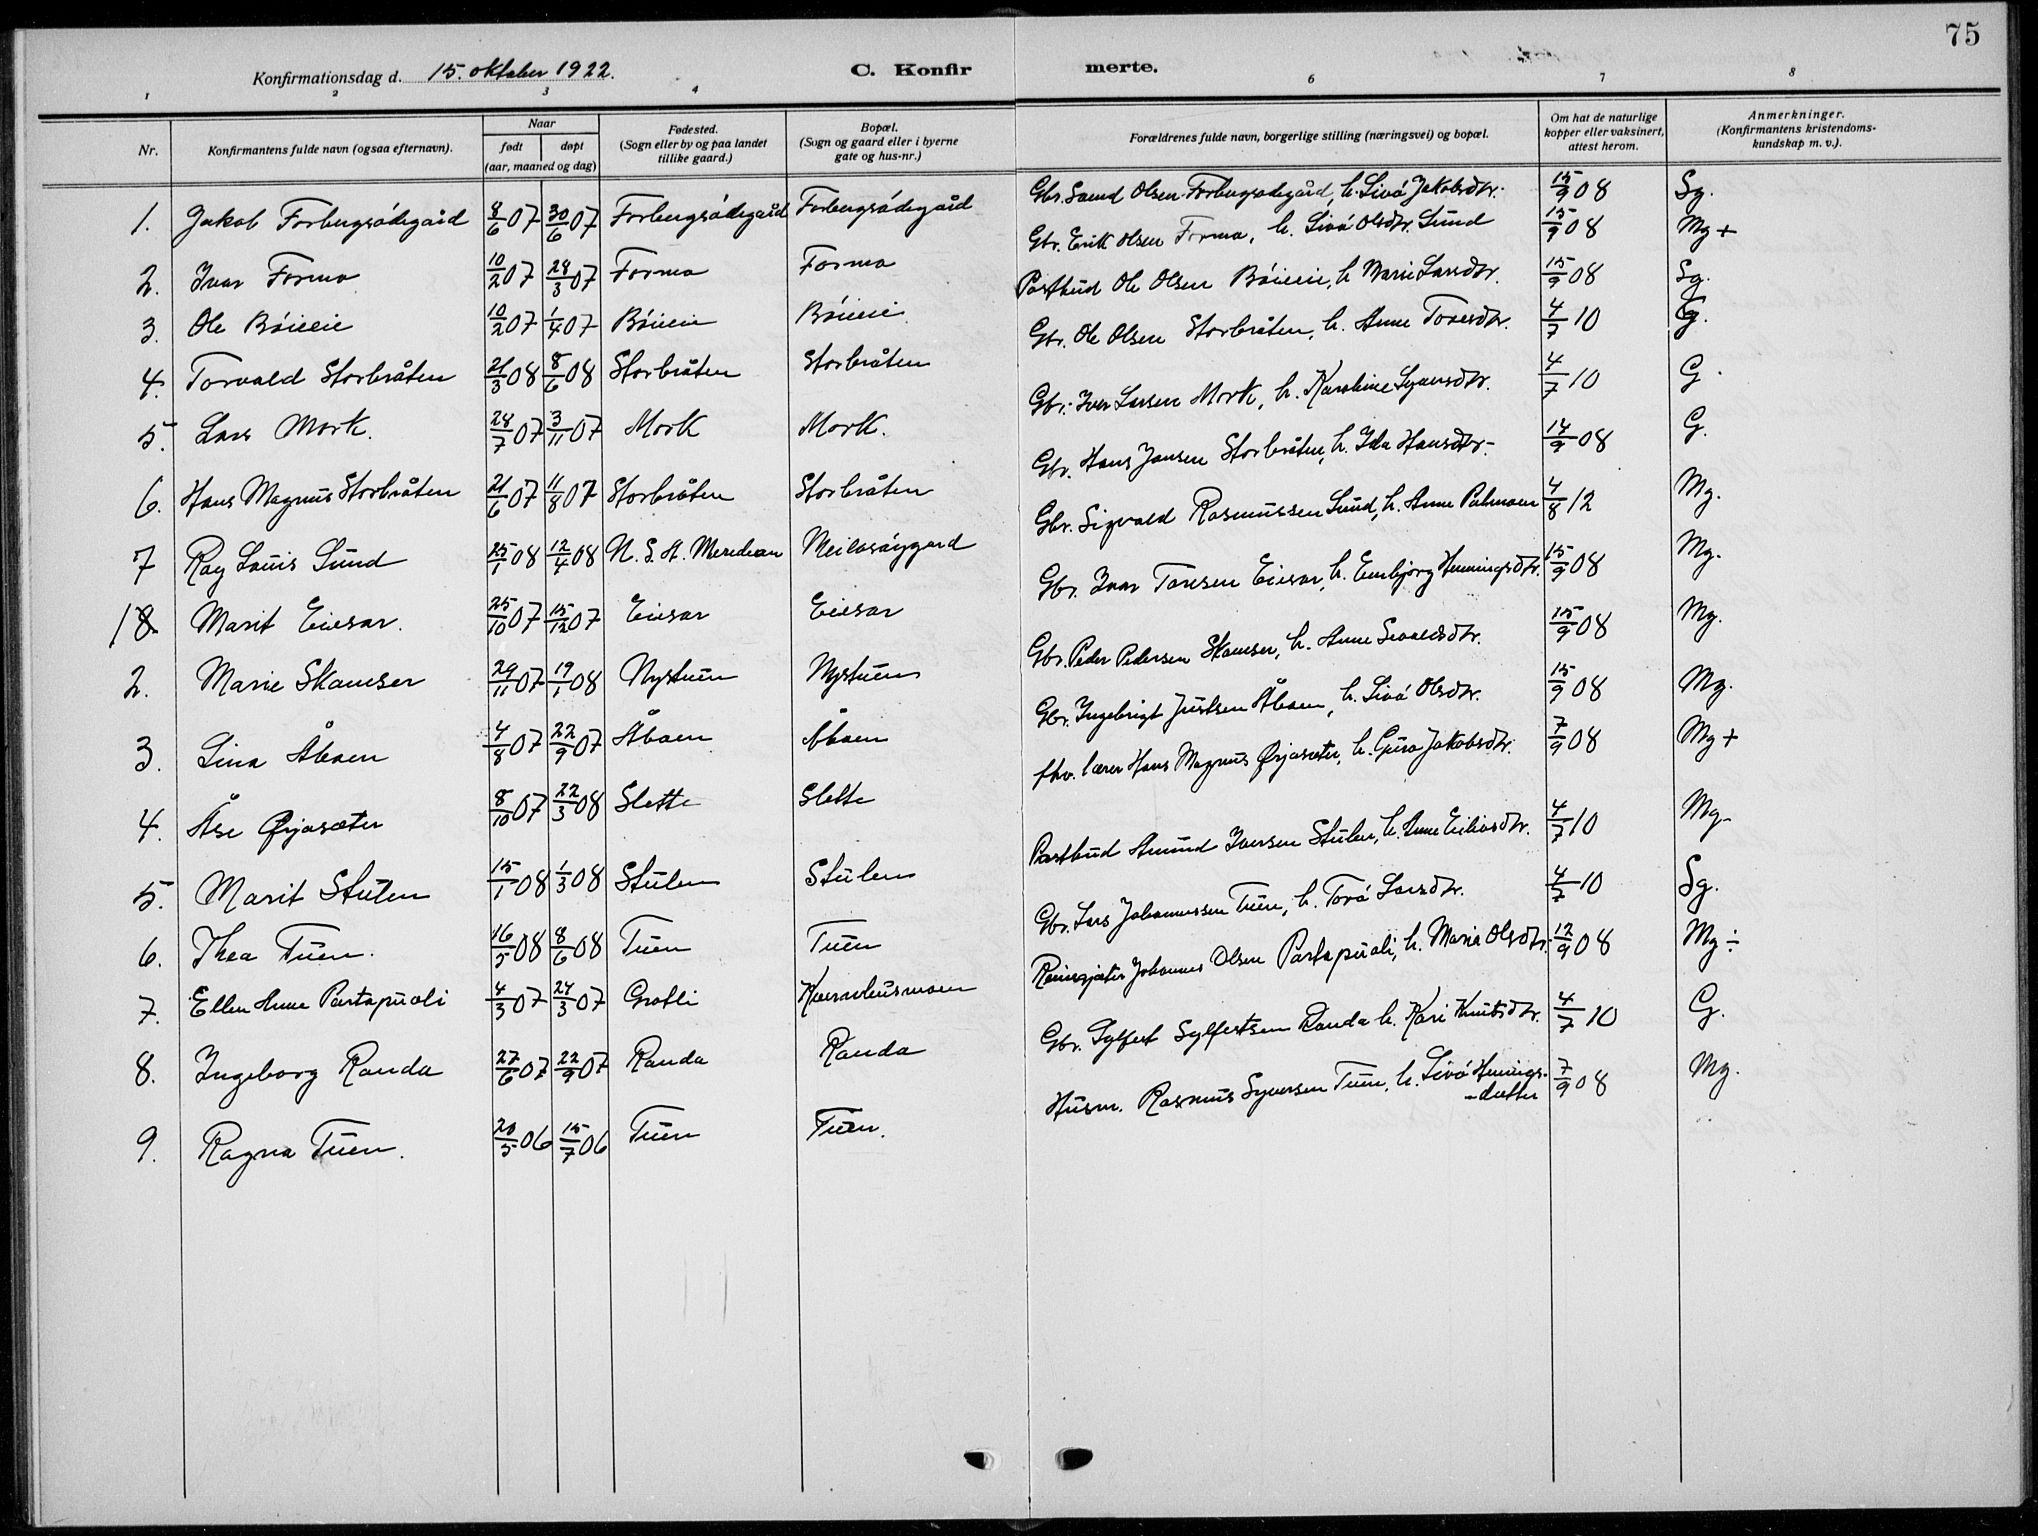 75
Konfirmationsdag d. 15. oktober 1922. C. Konfirmerte.
1 2 3 4 6 7 8
Nr. Konfirmantens fulde navn (ogsaa efternavn). Naar født døpt (aar, maaned og dag) Fødested. (Sogn eller by og paa landet tillike gaard.) Bopæl. (Sogn og gaard eller i byerne gate og hus-nr.) Forældrenes fulde navn, borgerlige stilling (næringsvei) og bopæl. Om hat de naturlige kopper eller vaksinert, attest herom. Anmerkninger. (Konfirmantens kristendoms-kundskap m. v.).
1. Jakob Forbergsødegård 8/6 07 30/6 07 Forbergsødegård Forbergsødegård Gbr. Olsen Forbergsødegård, h. Livó Jakobsdtr. 15/9 08 Sg.
2. Ivar Forma 10/2 07 28/3 07 Forma Forma Gbr. Erik Olsen Forma, h. Livó Olsdtr. Lund 15/9 08 Mg +
3. Ole Bóieeie 10/2 07 1/4 07 Bóieeie Bóieeie Postbud Ole Olsen Bóieeie, h. Marie Larsdtr. 15/9 08 Sg.
4. Torvald Storbråten 21/3 08 8/6 08 Storbråten Storbråten Gbr. Ole Olsen Storbråten, h. Anne Toresdtr. 4/7 10 Tg.
5. Lars Mork. 28/7 07 3/11 07 Mork Mork. Gbr. Iver Larsen Mork, h. Karoline Syversdtr. 4/7 10 G.
6. Hans Magnus Storbråten 21/6 07 11/8 07 Storbråten Storbråten Gbr. Hans Jansen Storbråten, h. Ida Hansdtr. 14/9 08 G.
7 Ray Louis Lund 25/1 08 12/4 08 N. S. A. Meridean Meilosóygard Gbr. Sigvald Rasmussen Lund, h. Anne Palmoen 4/8 12 Mg.
18. Marit Eiesar. 25/10 07 15/12 07 Eiesar Eiesar Gbr. Ivar Toresen Eiesar, h. Embjørg Henningsdtr. 15/9 08 Mg.
2. Marie Skamser 29/11 07 19/1 08 Nystuen Nystuen Gbr. Peder Pedersen Skamser, h. Anne Sevaldsdtr. 15/9 08 Mg.
3. Lina Åboen 4/8 07 22/9 07 Åboen Åboen Gbr. Ingebrigt Justsen Åboen, h. Livó Olsdtr. 15/9 08 Mg.
4. Åse Ørjasæter 8/10 07 22/3 08 Slette Slette fhv. lærer Hans Magnus Ørjasæter, h. Guro Jakobsdtr. 7/9 08 Mg +
5. Marit Stulen 15/1 08 1/3 08 Stulen Stulen Postbud Amund Iversen Stulen, h. Anne Eilivsdtr. 4/7 10 Mg.
6. Thea Tuen. 16/5 08 8/6 08 Tuen Tuen Gbr. Lars Johannessen Tuen, h. Toró Larsdtr. 4/7 10 Sg.
7. Ellen Anne Partapuoli 4/3 07 24/3 07 Grotli Kvernhusmoen Reinsgjæter Johannes Olsen Partapuoli, h. Maria Olsdtr. 12/9 08 Mg ÷
8. Ingeborg Randa 27/6 07 22/9 07 Randa Randa Gbr. Sylfest Sylfestsen Randa h. Kari Knutsdtr. 4/7 10 G.
9. Ragna Tuen. 20/5 06 15/7 06 Tuen Tuen. Husm. Rasmus Syversen Tuen, h. Livó Hennings-datter 7/9 08 Mg.